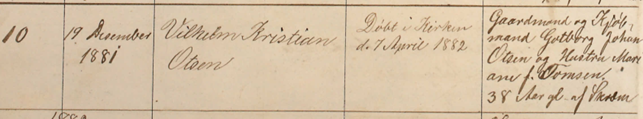 10
19. Desember
1881
Vilhelm Kristian
Olsen
Døbt i Kirken
d. 7 April 1882
Gaardmand og Kjøb-
mand Gotberg Johan
Olsen og Hustru Mari
ane f. Tomsen
38 Aar gl. af Skrem